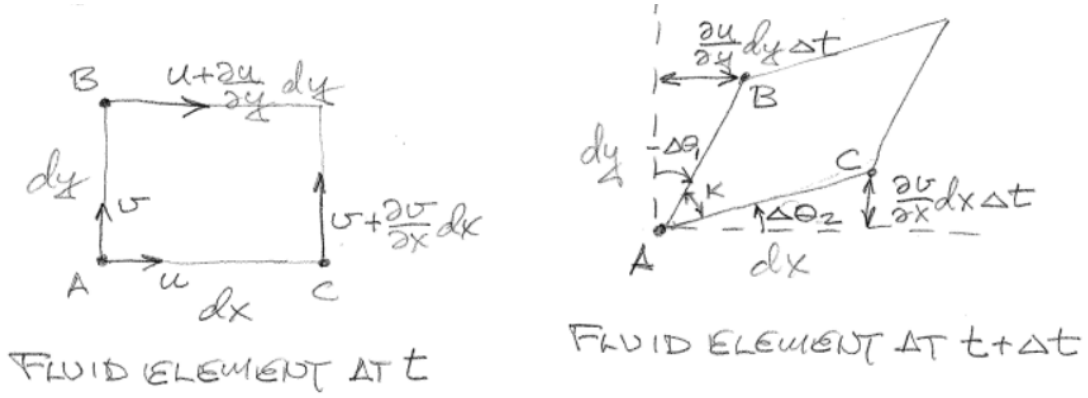 B
u+∂u/∂y dy
dy
v
v+∂v/∂x dx
A
u
C
dx
FLUID ELEMENT AT t
∂u/∂y dy Δt
B
dy
Δθ₁
K
C
∂v/∂x dx Δt
Δθ₂
A
dx
FLUID ELEMENT AT t+Δt